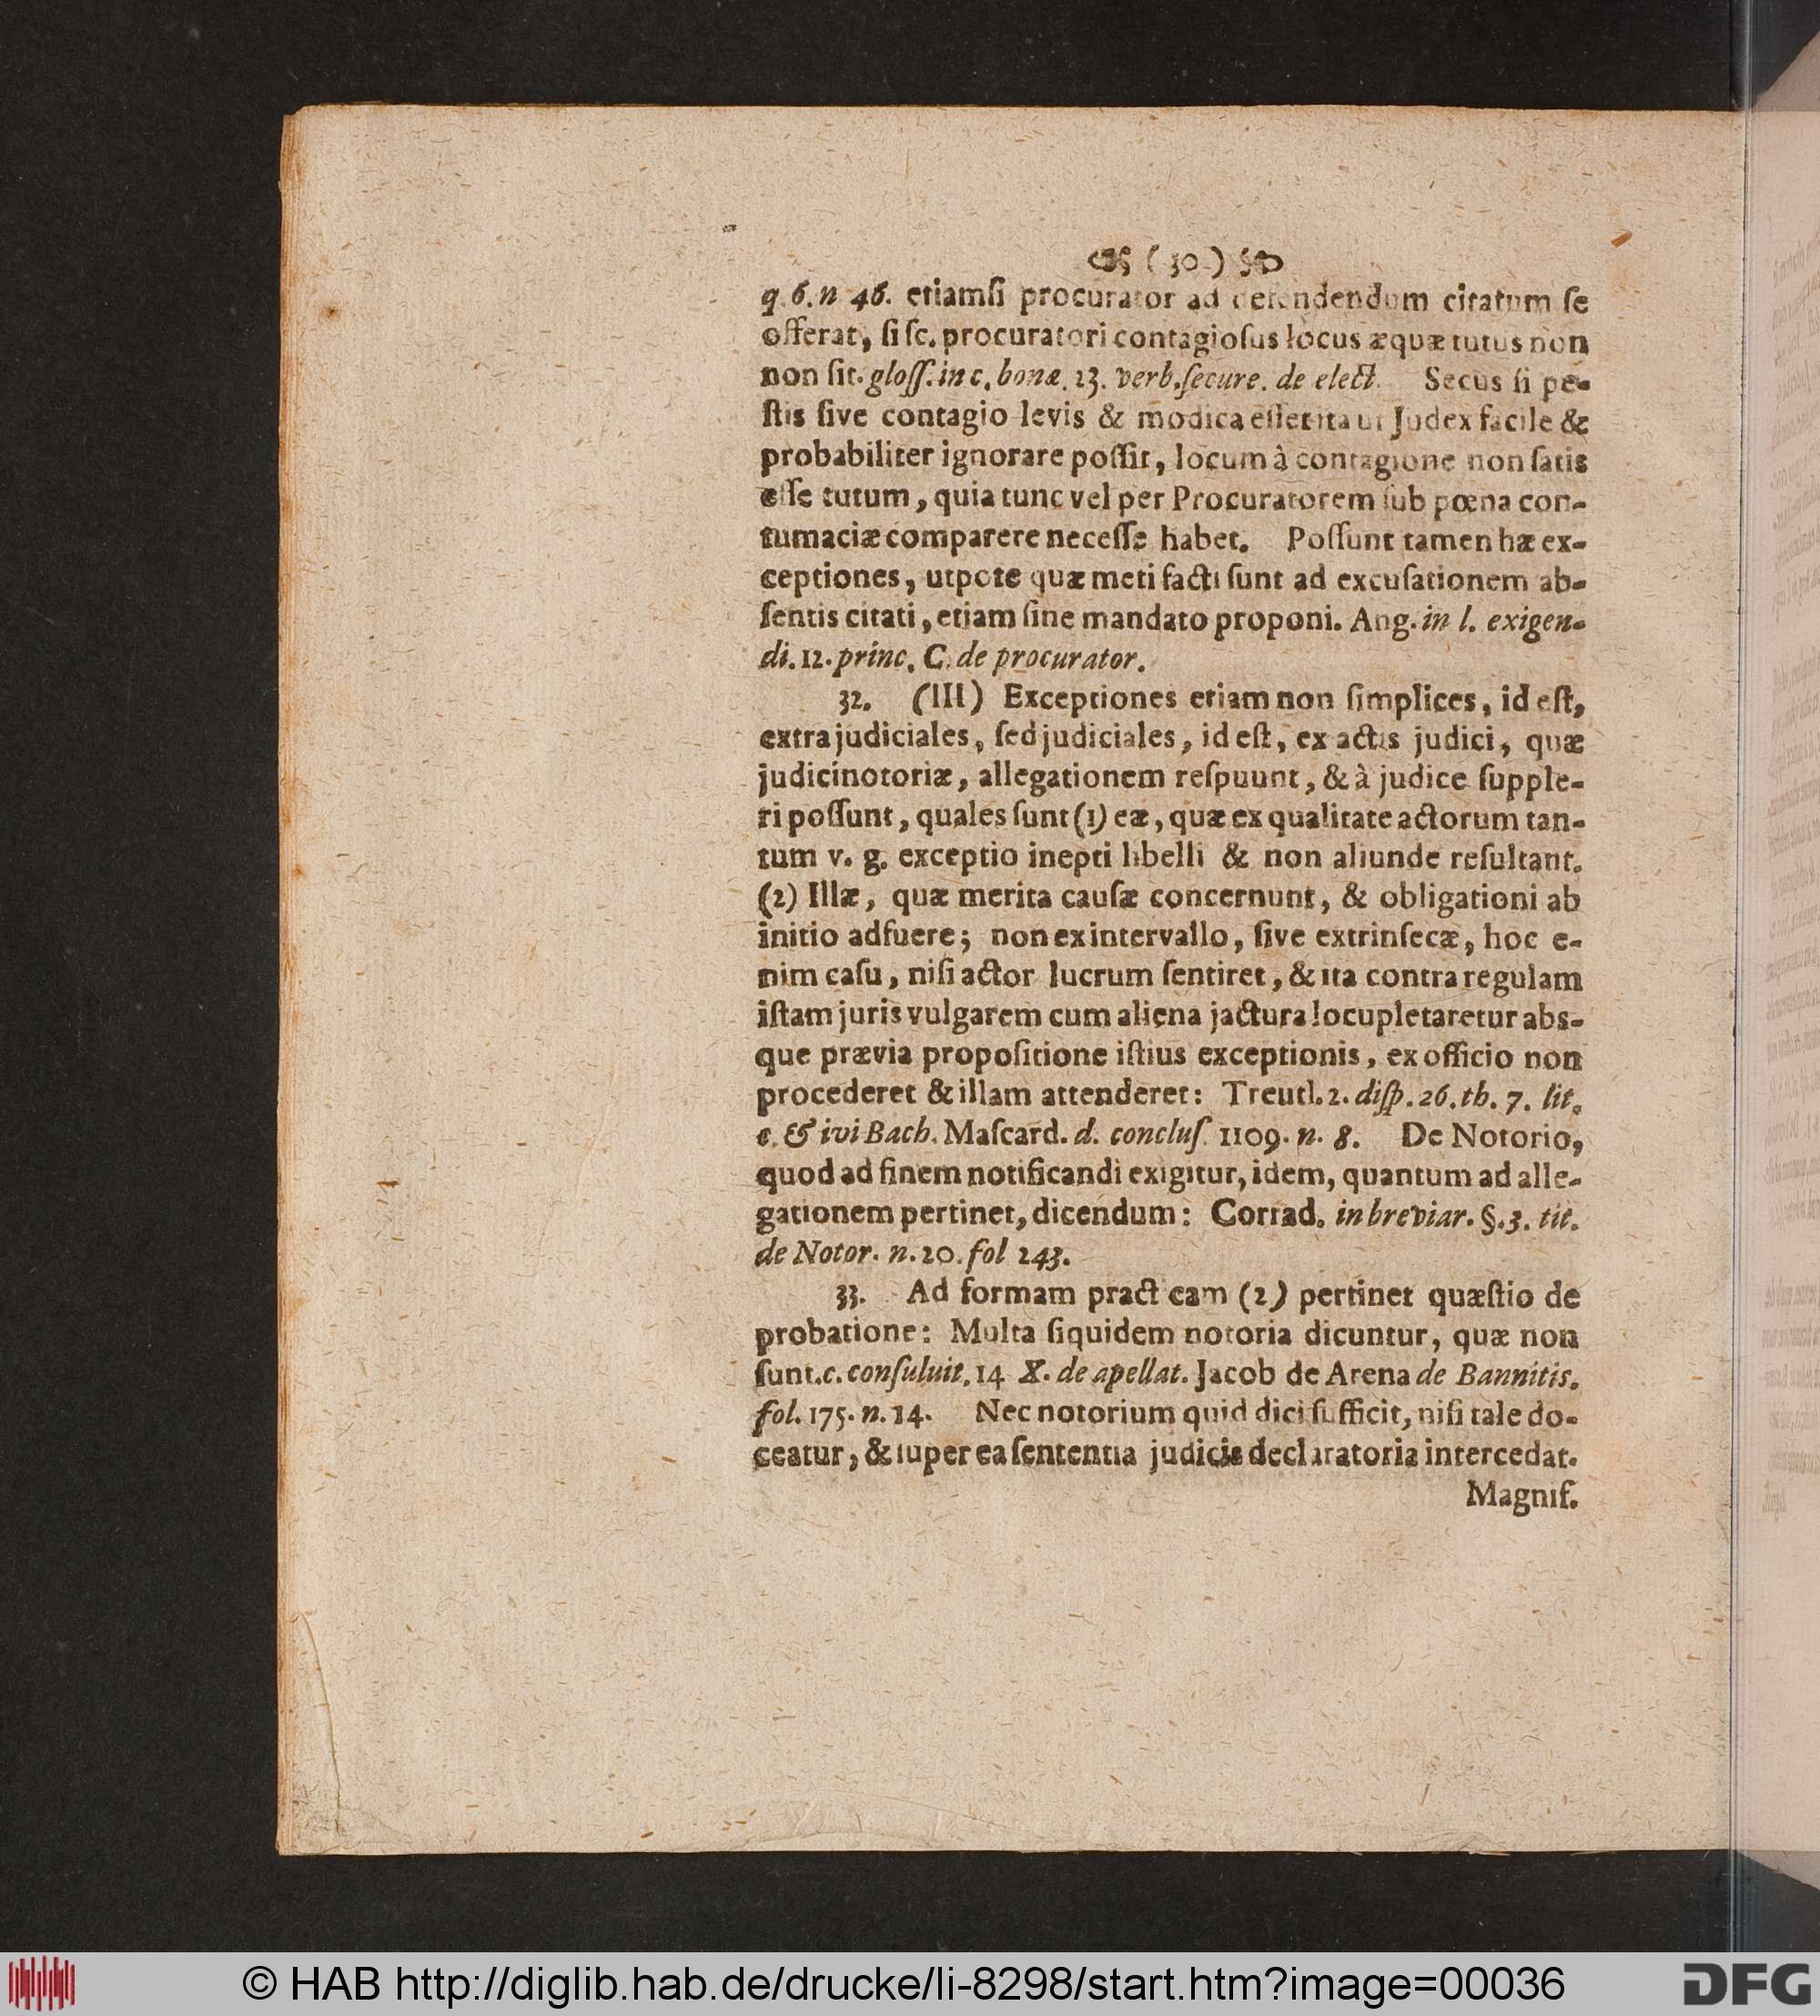 (30.)
q. 6. n 46. etiamſi procurator ad defendendum citatum ſe
offerat, ſi ſc. procuratori contagioſus locus æquæ tutus non
non ſit. gloſſ. in c. bonæ. 23. verb. ſecure. de elect. Secus ſi pe-
ſtis ſive contagio levis & modica eſſet ita ut Judex facile &
probabiliter ignorare poſſit, locum à contagione non ſatis
eſſe tutum, quia tunc vel per Procuratorem ſub pœna con-
tumaciæ comparere neceſſe habet. Poſſunt tamen hæ ex-
ceptiones, utpote quæ meti facti ſunt ad excuſationem ab-
ſentis citati, etiam ſine mandato proponi. Ang. in l. exigen-
di. 12. princ. C. de procurator.
32. (III) Exceptiones etiam non ſimplices, id eſt,
extrajudiciales, ſed judiciales, id eſt, ex actis judici, quæ
judici notoriæ, allegationem reſpuunt, & à judice ſupple-
ri poſſunt, quales ſunt (1) eæ, quæ ex qualitate actorum tan-
tum v. g. exceptio inepti libelli & non aliunde reſultant.
(2) Illæ, quæ merita cauſæ concernunt, & obligationi ab
initio adfuere; non ex intervallo, ſive extrinſecæ, hoc e-
nim caſu, niſi actor lucrum ſentiret, & ita contra regulam
iſtam juris vulgarem cum aliena jactura locupletaretur abs-
que prævia propoſitione iſtius exceptionis, ex officio non
procederet & illam attenderet: Treutl. 2. diſp. 26. th. 7. lit.
c. & ivi Bach. Maſcard. d. concluſ. 1109. n. 8. De Notorio,
quod ad finem notificandi exigitur, idem, quantum ad alle-
gationem pertinet, dicendum: Corrad. in breviar. §. 3. tit.
de Notor. n. 20. fol 243.
33. Ad formam pract cam (2) pertinet quæſtio de
probatione: Multa ſiquidem notoria dicuntur, quæ non
ſunt. c. conſuluit. 14 X. de apellat. Jacob de Arena de Bannitis.
fol. 175. n. 14. Nec notorium quid dici ſufficit, niſi tale do-
ceatur, & ſuper ea ſententia judicis declaratoria intercedat.
Magnif.
© HAB http://diglib.hab.de/drucke/li-8298/start.htm?image=00036
DFG